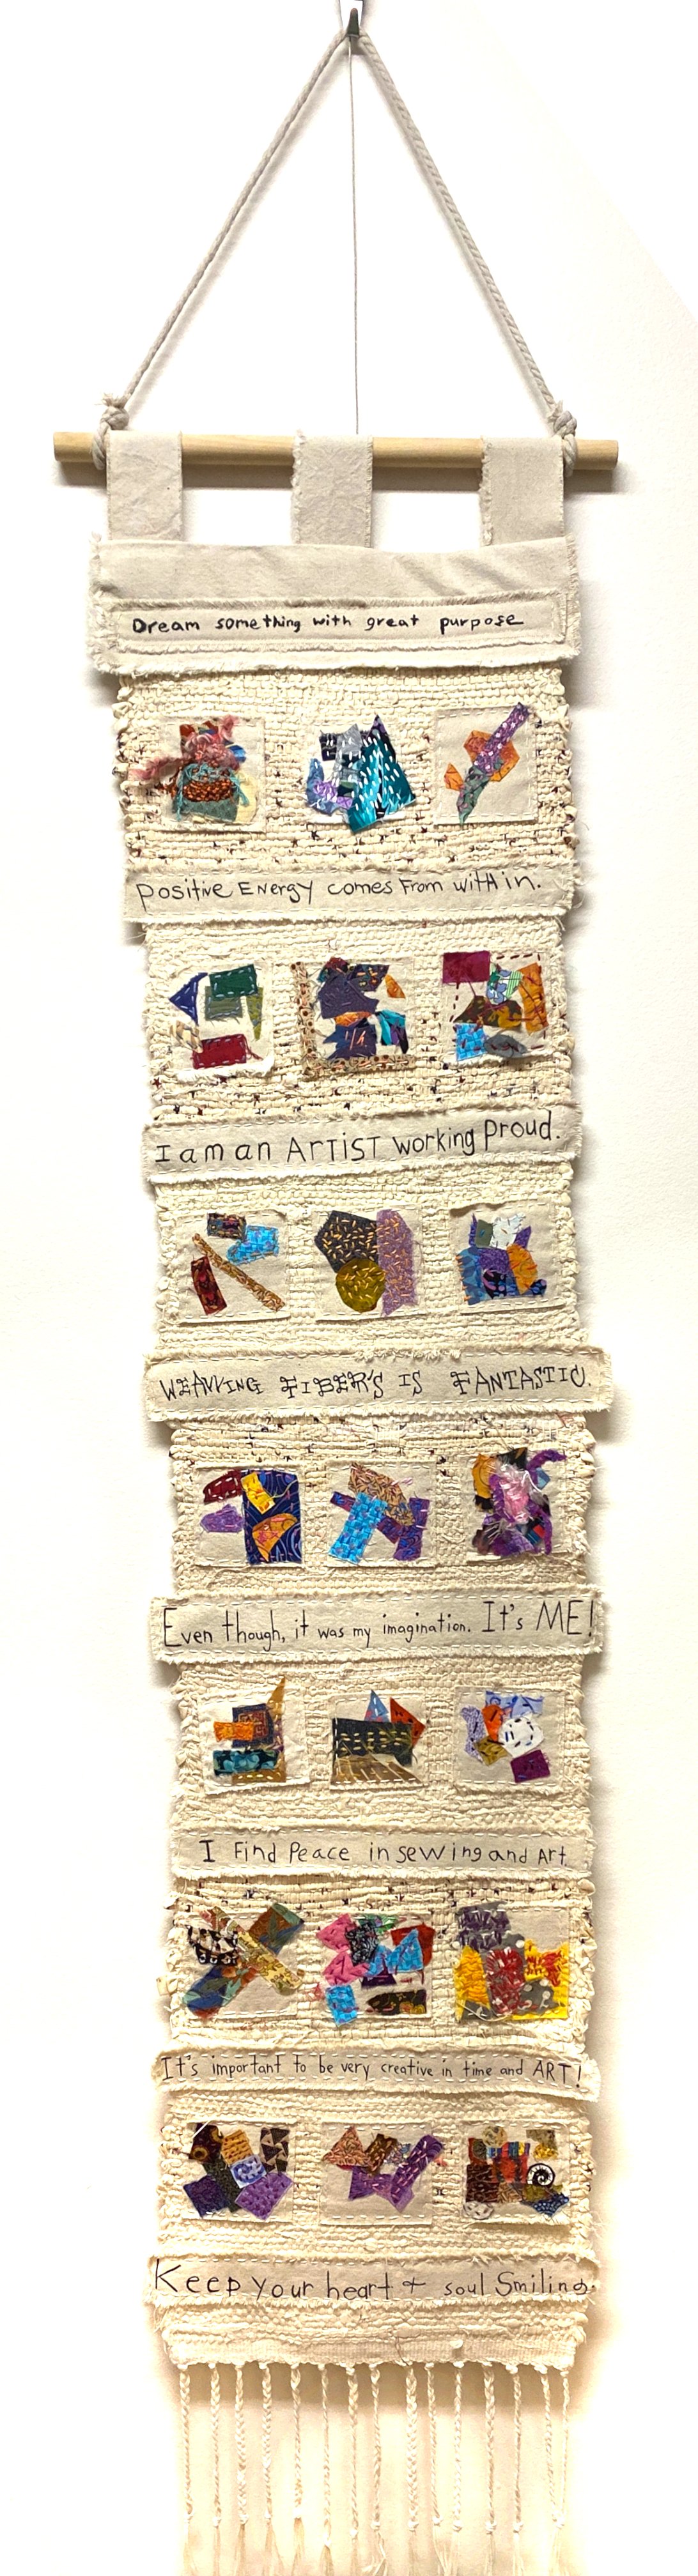 Dream something with great purpose
Positive Energy comes From within.
I am an ARTIST working Proud.
WEAVING FIBER'S IS FANTASTIC.
Even though, it was my imagination. It's ME!
I Find Peace in sewing and Art.
It's important to be very creative in time and ART!
Keep your heart + soul Smiling.